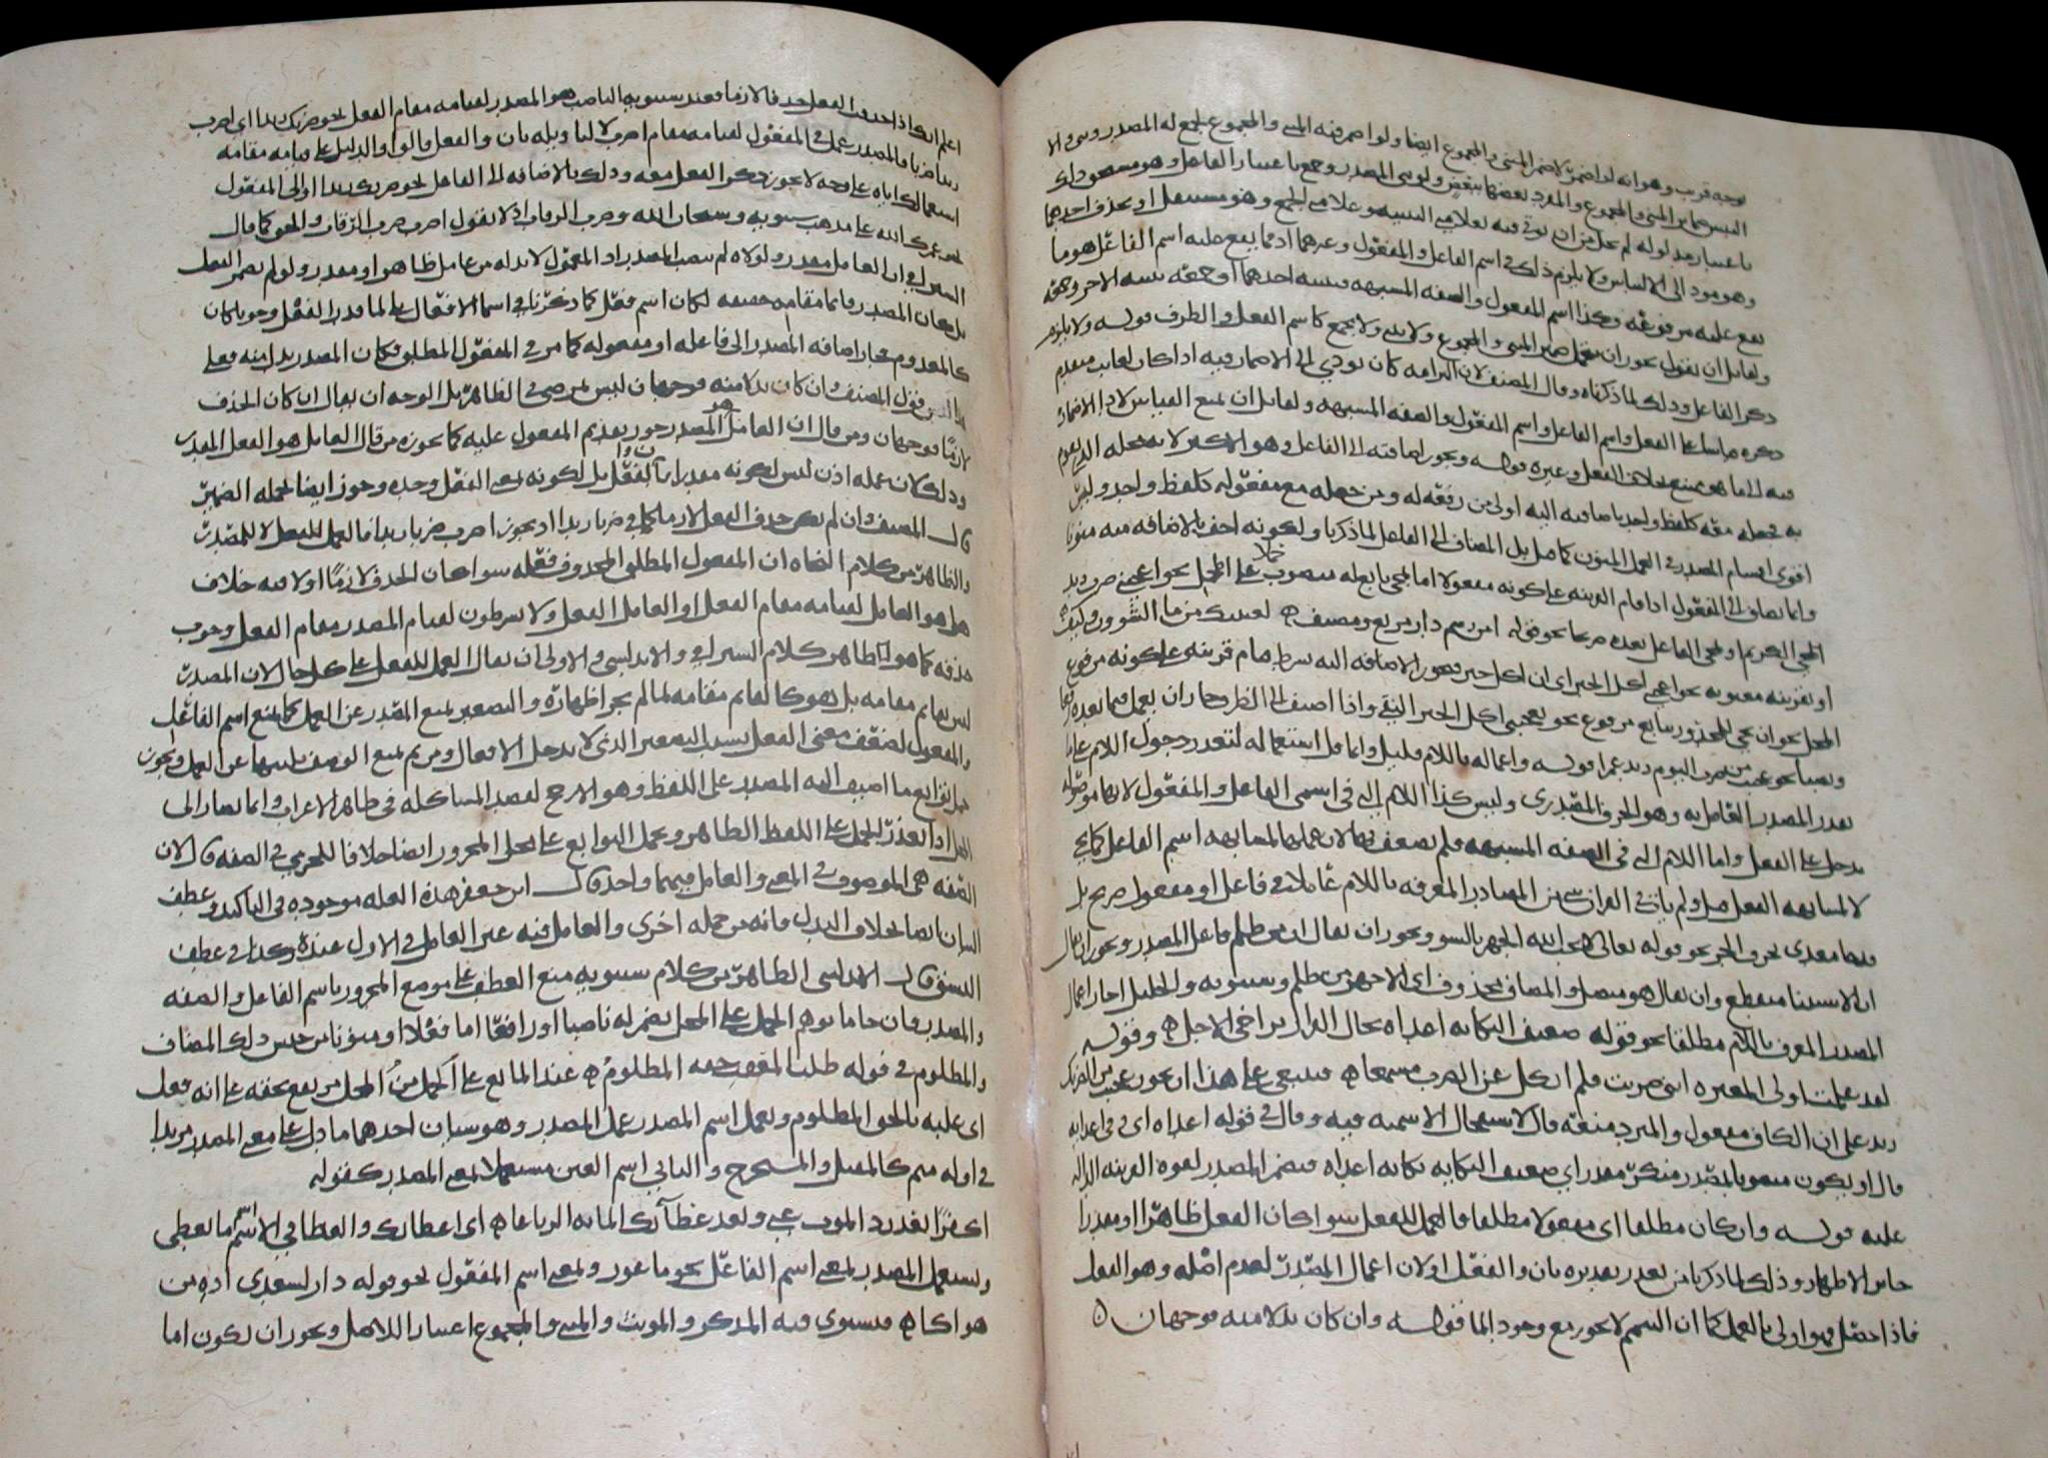 توجيه قريب وهو انه لو اضمرت لاضمر المثنى والمجموع ايضا ولو اضمر فيه المثنى والمجموع لجمع له المصدر وثنى والا
التبس ضمائر المثنى والمجموع والمفرد بعضها ببعض ولو ثنى المصدر وجمع باعتبار الفاعل وهو مستحق ذلك
باعتبار مدلوله لم يخل من ان يؤتى فيه بعلامتي التثنيه وعلامتي الجمع وهو مستثقل او بحذف احدهما
وهو مود الى الالباس ولا يلزم ذلك في اسم الفاعل والمفعول وغيرهما اذ ما يقع عليه اسم الفاعل هو ما
يقع عليه مرفوعه وكذا اسم المفعول والصفه المشبهه فتثنيه احدهما وجمعه تثنيه الاخر وجمعه
ولقائل ان يقول يجوز ان يتحمل ضمير المثنى والمجموع ولا يثنى ولا يجمع كاسم الفعل والظرف قوله ولا يلزم
ذكر الفاعل وذلك لما ذكرناه وقال المصنف لان التزامه كان يودي الى الاضمار فيه اذا كان لغايب متقدم
ذكره قياسا على الفعل واسم الفاعل واسم المفعول والصفه المشبهه ولقائل ان يمنع القياس لاداء الاضمار
فيه الى ما هو ممتنع بخلاف الفعل وغيره قوله ويجوز اضافته الى الفاعل وهو الاكثر لانه محله الذي يقوم
به فجعله معه كلفظ واحد باضافته اليه اولى من رفعه له ومن جعله مع مفعوله كلفظ واحد وليس
اقوى اقسام المصدر في العمل المنون كما قيل بل المضاف الى الفاعل لما ذكرنا ولكونه اخف بالاضافه منه منونا
وانما يضاف الى المفعول اذا قام القرينه على كونه مفعولا اما بمجي تابع له منصوب حملا على المحل نحو اعجبني ضرب زيد
الكريم او بمجي الفاعل بعده صريحا نحو قوله امن رسم دار مربع ومصيف ه لعينيك من ما الشوون وكيف
او بقرينه معنويه نحو اعجبني اكل الخبز اي ان اكل خبز فيجوز الاضافه اليه بشرط قيام قرينه على كونه مرفوع
المحل نحو ان يجي للمجرور بتابع مرفوع نحو يعجبني اكل الخبز النقي واذا اضيف الى الظرف جاز ان يعمل فيما بعده رفعا
ونصبا نحو عجبت من ضرب اليوم زيد عمرا قوله واعماله باللام قليل وانما قل استعماله لتعذر دخول اللام على ما
يقدر المصدر العامل به وهو الحرف المصدري وليس كذا اللام التي في اسمي الفاعل والمفعول لانها موصوله
تدخل على الفعل واما اللام التي في الصفه المشبهه فلم تضعف بها لان عملها لمشابهه اسم الفاعل كما يجي
لا لمشابهه الفعل قيل ولم يات في القران شي من المصادر المعرفه باللام عاملا في فاعل او مفعول صريح بل
قد جا معدى بحرف الجر نحو قوله تعالى لا يحب الله الجهر بالسوء ويجوز ان يقال ان من ظلم فاعل المصدر ويجوز ان يقال
ان الاستثنا منقطع وان يقال هو متصل والمضاف محذوف اي الا جهر من ظلم وسيبويه والخليل اجازا اعمال
المصدر المعرف باللام مطلقا نحو قوله ضعيف النكايه اعداه يخال الفرار يراخي الاجل ه وقوله
لقد علمت اولى المغيره انني ضربت فلم انكل عن الضرب مسمعا ه فينبغي على هذا ان يجوز عجبت من الضربك
زيد على ان الكاف مفعول والمبرد منعه قال لاستفحال الاسميه فيه وقال في قوله اعداه اي في اعدايه
قال او يكون منصوبا بمصدر منكر مقدر اي ضعيف النكايه نكايه اعداه فيضمر المصدر لقوه القرينه الداله
عليه قوله وان كان مطلقا اي مفعولا مطلقا فالعمل للفعل سوا كان الفعل ظاهرا او مقدرا
جايز الاظهار وذلك لما ذكرنا من تعذر تقديره بان والفعل اولان اعمال المصدر لعدم اصله وهو الفعل
فاذا حصل فهو اولى بالعمل كما ان التيمم لا يجوز مع وجود الما قوله وان كان بدلا منه فوجهان ه
اعلم انك اذا حذفت الفعل حذفا لازما فعند سيبويه الناصب هو المصدر لقيامه مقام الفعل نحو ضربك زيدا اي اضرب
زيدا ضربا فالمصدر عمل في المفعول لقيامه مقام اضرب لا لتاويله بان والفعل قالوا والدليل على قيامه مقامه
استعمالك اياه على وجه لا يجوز ذكر الفعل معه وذلك بالاضافه الى الفاعل نحو ضربك زيدا او الى المفعول
نحو عمرك الله على مذهب سيبويه وسبحان الله وضرب الرقاب اذ لا تقول اضرب ضرب الرقاب والحق كما قال
السيرافي ان العامل مقدر ولولاه لم ينتصب المصدر اذ المعمول لابد له من عامل ظاهر او مقدر ولو لم يضمر الفعل
بل كان المصدر قائما مقامه حقيقه لكان اسم فعل كما ذكرنا في اسما الافعال بلى لما قدر الفعل وجوبا كان
كالمعدوم فجاز اضافه المصدر الى فاعله او مفعوله كما مر في المفعول المطلق فكان المصدر بدل منه فعلى
هذا قول المصنف وان كان بدلا منه فوجهان ليس بمرضي في الظاهر بل الوجه ان يقال ان كان الحذف
لازما فوجهان ومن قال ان العامل هو المصدر جوز تقديم المفعول عليه كما يجوزه من قال العامل هو الفعل المقدر
وذلك لان عمله اذن ليس لكونه مقدرا بان والفعل بل لكونه بمعنى الفعل وحده وجوز ايضا تحمله الضمير
قال المصنف وان لم يكن حذف الفعل لازما كما في ضربا زيدا اذ يجوز اضرب ضربا زيدا فالعمل للفعل لا للمصدر
والظاهر من كلام النحاه ان المفعول المطلق المحذوف فعله سوا كان الحذف لازما اولا فيه خلاف
هل هو العامل لقيامه مقام الفعل او العامل الفعل ولا يشرطون لقيام المصدر مقام الفعل وجوب
حذفه كما هو الظاهر كلام السيرافي والاندلسي والاولى ان يقال العمل للفعل على كل حال لان المصدر
ليس بقايم مقامه بل هو كالقايم مقامه لما لم يجز اظهاره والتصغير يمنع المصدر عن العمل كما يمنع اسم الفاعل
والمفعول لضعف معنى الفعل بسبب التصغير الذي لا يدخل الافعال ومن ثم يمنع الوصف ثلثتها عن العمل ويجوز
حمل توابع ما اضيف اليه المصدر على اللفظ وهو الارجح لقصد المشاكله في ظاهر الاعراب وانما يصار الى
المحل اذا تعذر الحمل على اللفظ الظاهر وتحمل التوابع على محل المجرور ايضا خلافا للجرمي في الصفه قال لان
الصفه هي الموصوف في المعنى والعامل فيهما واحد قال ابن جعفر هذه العله موجوده في التاكيد وعطف
البيان ايضا بخلاف البدل فانه من جمله اخرى والعامل فيه غير العامل في الاول عنده وكذا في عطف
النسق قال الاندلسي الظاهر من كلام سيبويه منع العطف على موضع المجرور باسم الفاعل والصفه
والمصدر فان جا ما يوهم الحمل على المحل نضمر له ناصبا او رافعا اما فعلا او منونا من جنس ذلك المضاف
والمظلوم في قوله طلب المعقب حقه المظلوم ه عند المانع على الحمل من المحل مرتفع بحقه على انه فعل
اي غلبه بالحق المظلوم ويعمل اسم المصدر عمل المصدر وهو شيان احدهما ما دل على معنى المصدر مزيدا
في اوله ميم كالمقتل والمستخرج والثاني اسم العين مستعملا بمعنى المصدر كقوله
اكفرا بعد رد الموت عني وبعد عطآئك المايه الرتاعا ه اي اعطائك والعطا في الاصل اسم ما يعطى
ويستعمل المصدر بمعنى اسم الفاعل نحو ما غور وبمعنى اسم المفعول نحو قوله دار لسعدى اذه من
هواكا ه فيستوي فيه المذكر والمونث والمثنى والمجموع اعتبارا للاصل ويجوز ان يكون اما